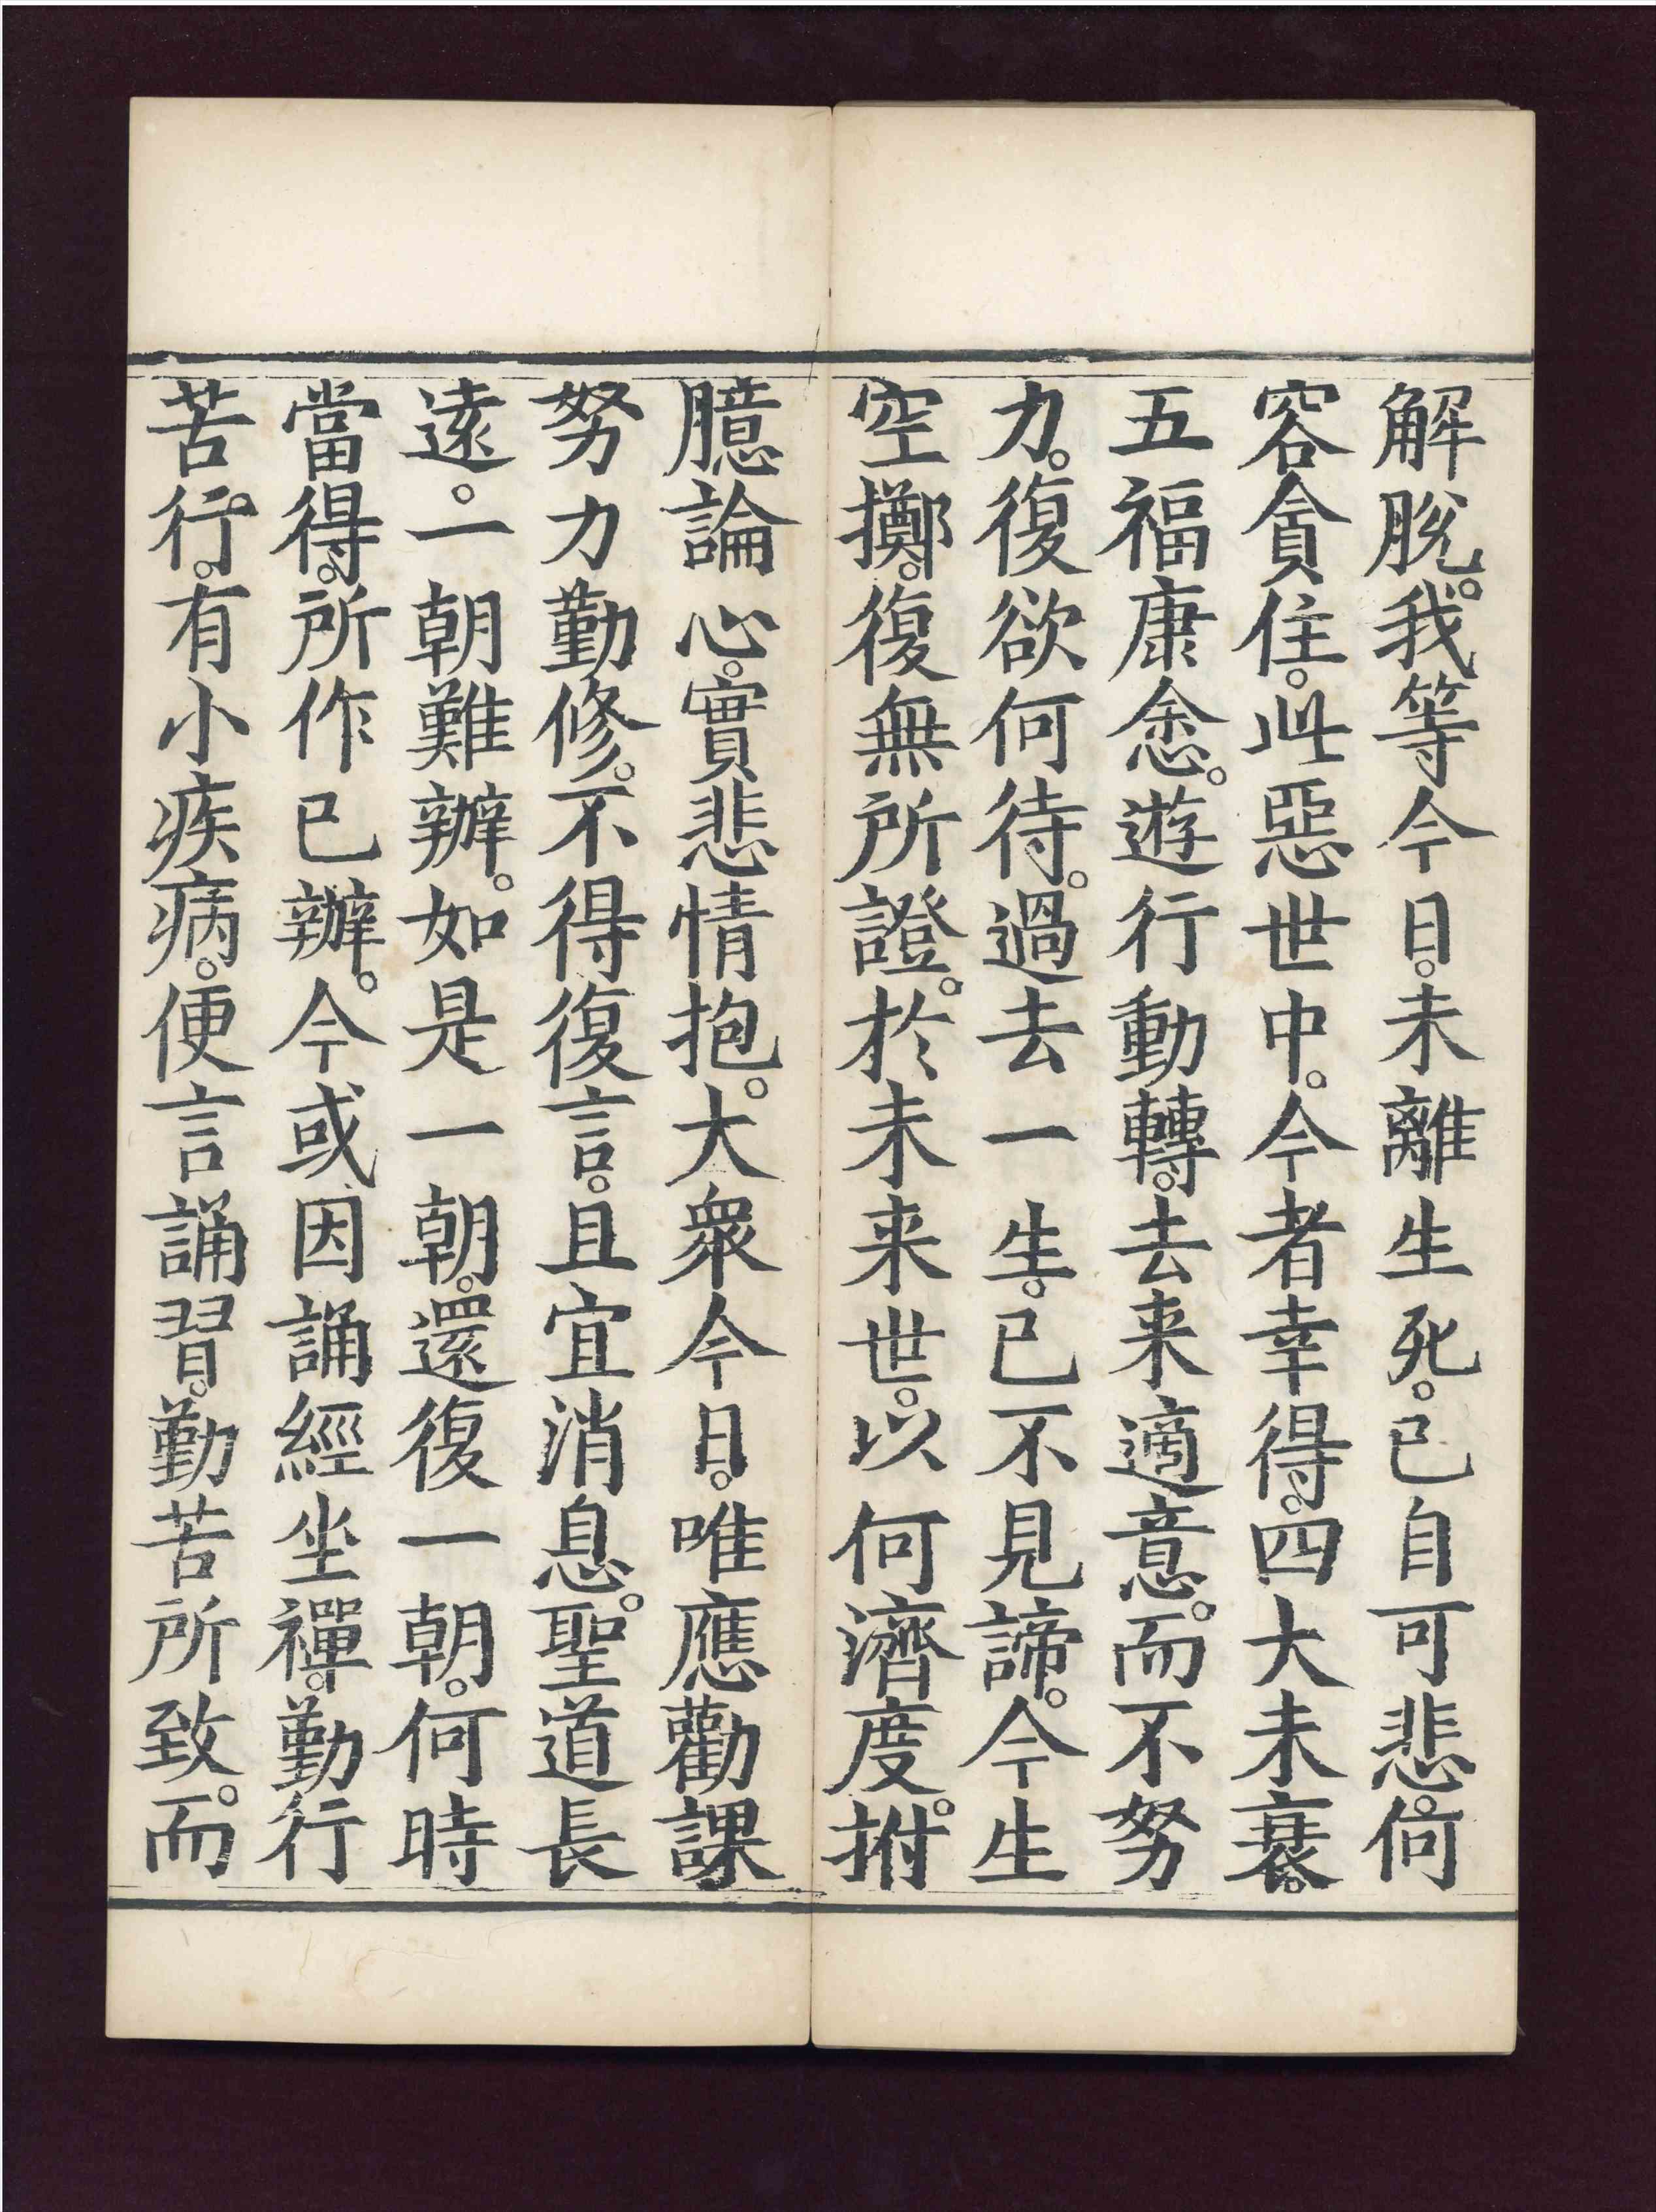 解脫。我等今日。未離生死。已自可悲。何
容貪住。此惡世中。今者幸得。四大未衰。
五福康悆。遊行動轉。去来適意。而不努
力。復欲何待。過去一生。已不見諦。今生
空擲。復無所證。於未来世。以何濟度。拊
臆論心。實悲情抱。大衆今日。唯應勸課
努力勤修。不得復言。且宜消息。聖道長
遠。一朝難辦。如是一朝。還復一朝。何時
當得。所作已辦。今或因誦經坐禪。勤行
苦行。有小疾病。便言誦習。勤苦所致。而